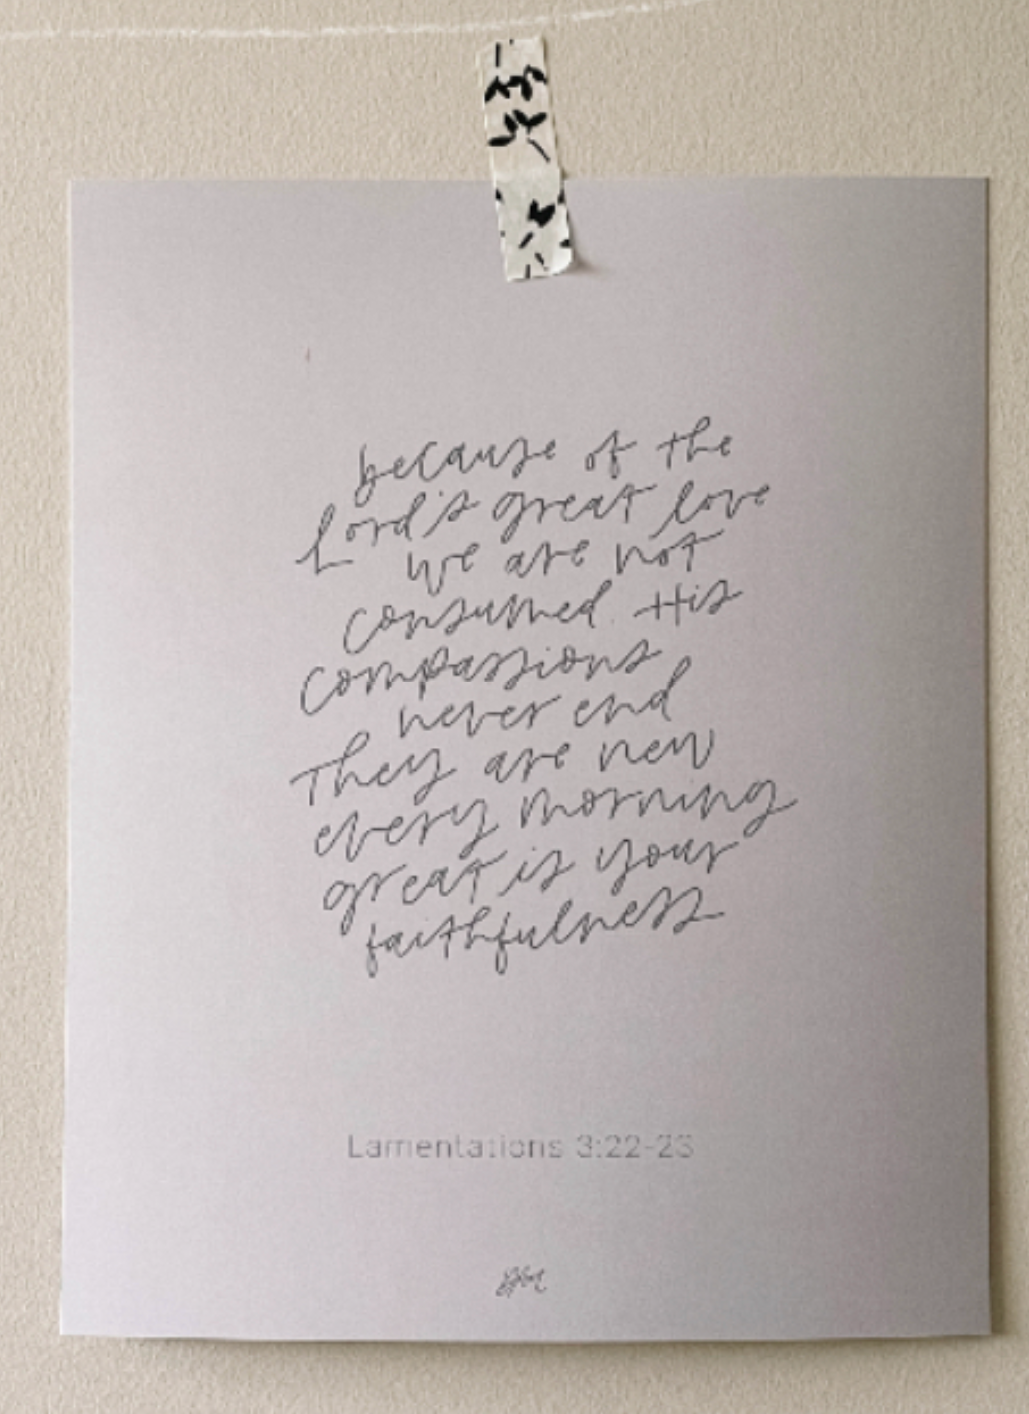 because of the
Lord's great love
we are not
consumed. His
compassions
never end
They are new
every morning
great is your
faithfulness
Lamentations 3:22-23